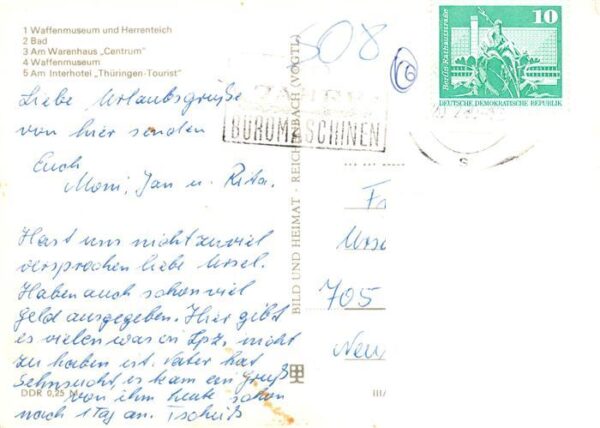 1 Waffenmuseum und Herrenteich
2 Bad
3 Am Warenhaus „Centrum"
4 Waffenmuseum
5 Am Interhotel „Thüringen-Tourist"
Liebe Urlaubsgrüße
von hier senden
Euch,
Moni, Jan u. Rita.
Hast uns nicht zuviel
versprochen liebe Ursel.
Haben auch schon viel
Geld ausgegeben. Hier gibt
es vieles was in Lpz. nicht
zu haben ist. Vater hat
Sehnsucht, es kam ein Gruß
von ihm heute schon
nach 1 Tag an. Tschüß
DDR 0,25 M
BILD UND HEIMAT · REICHENBACH (VOGTL)
508
6
BÜROMASCHINEN
10
Berlin, Rathausstraße
DEUTSCHE DEMOKRATISCHE REPUBLIK
F
Urs
705
Neu
III/